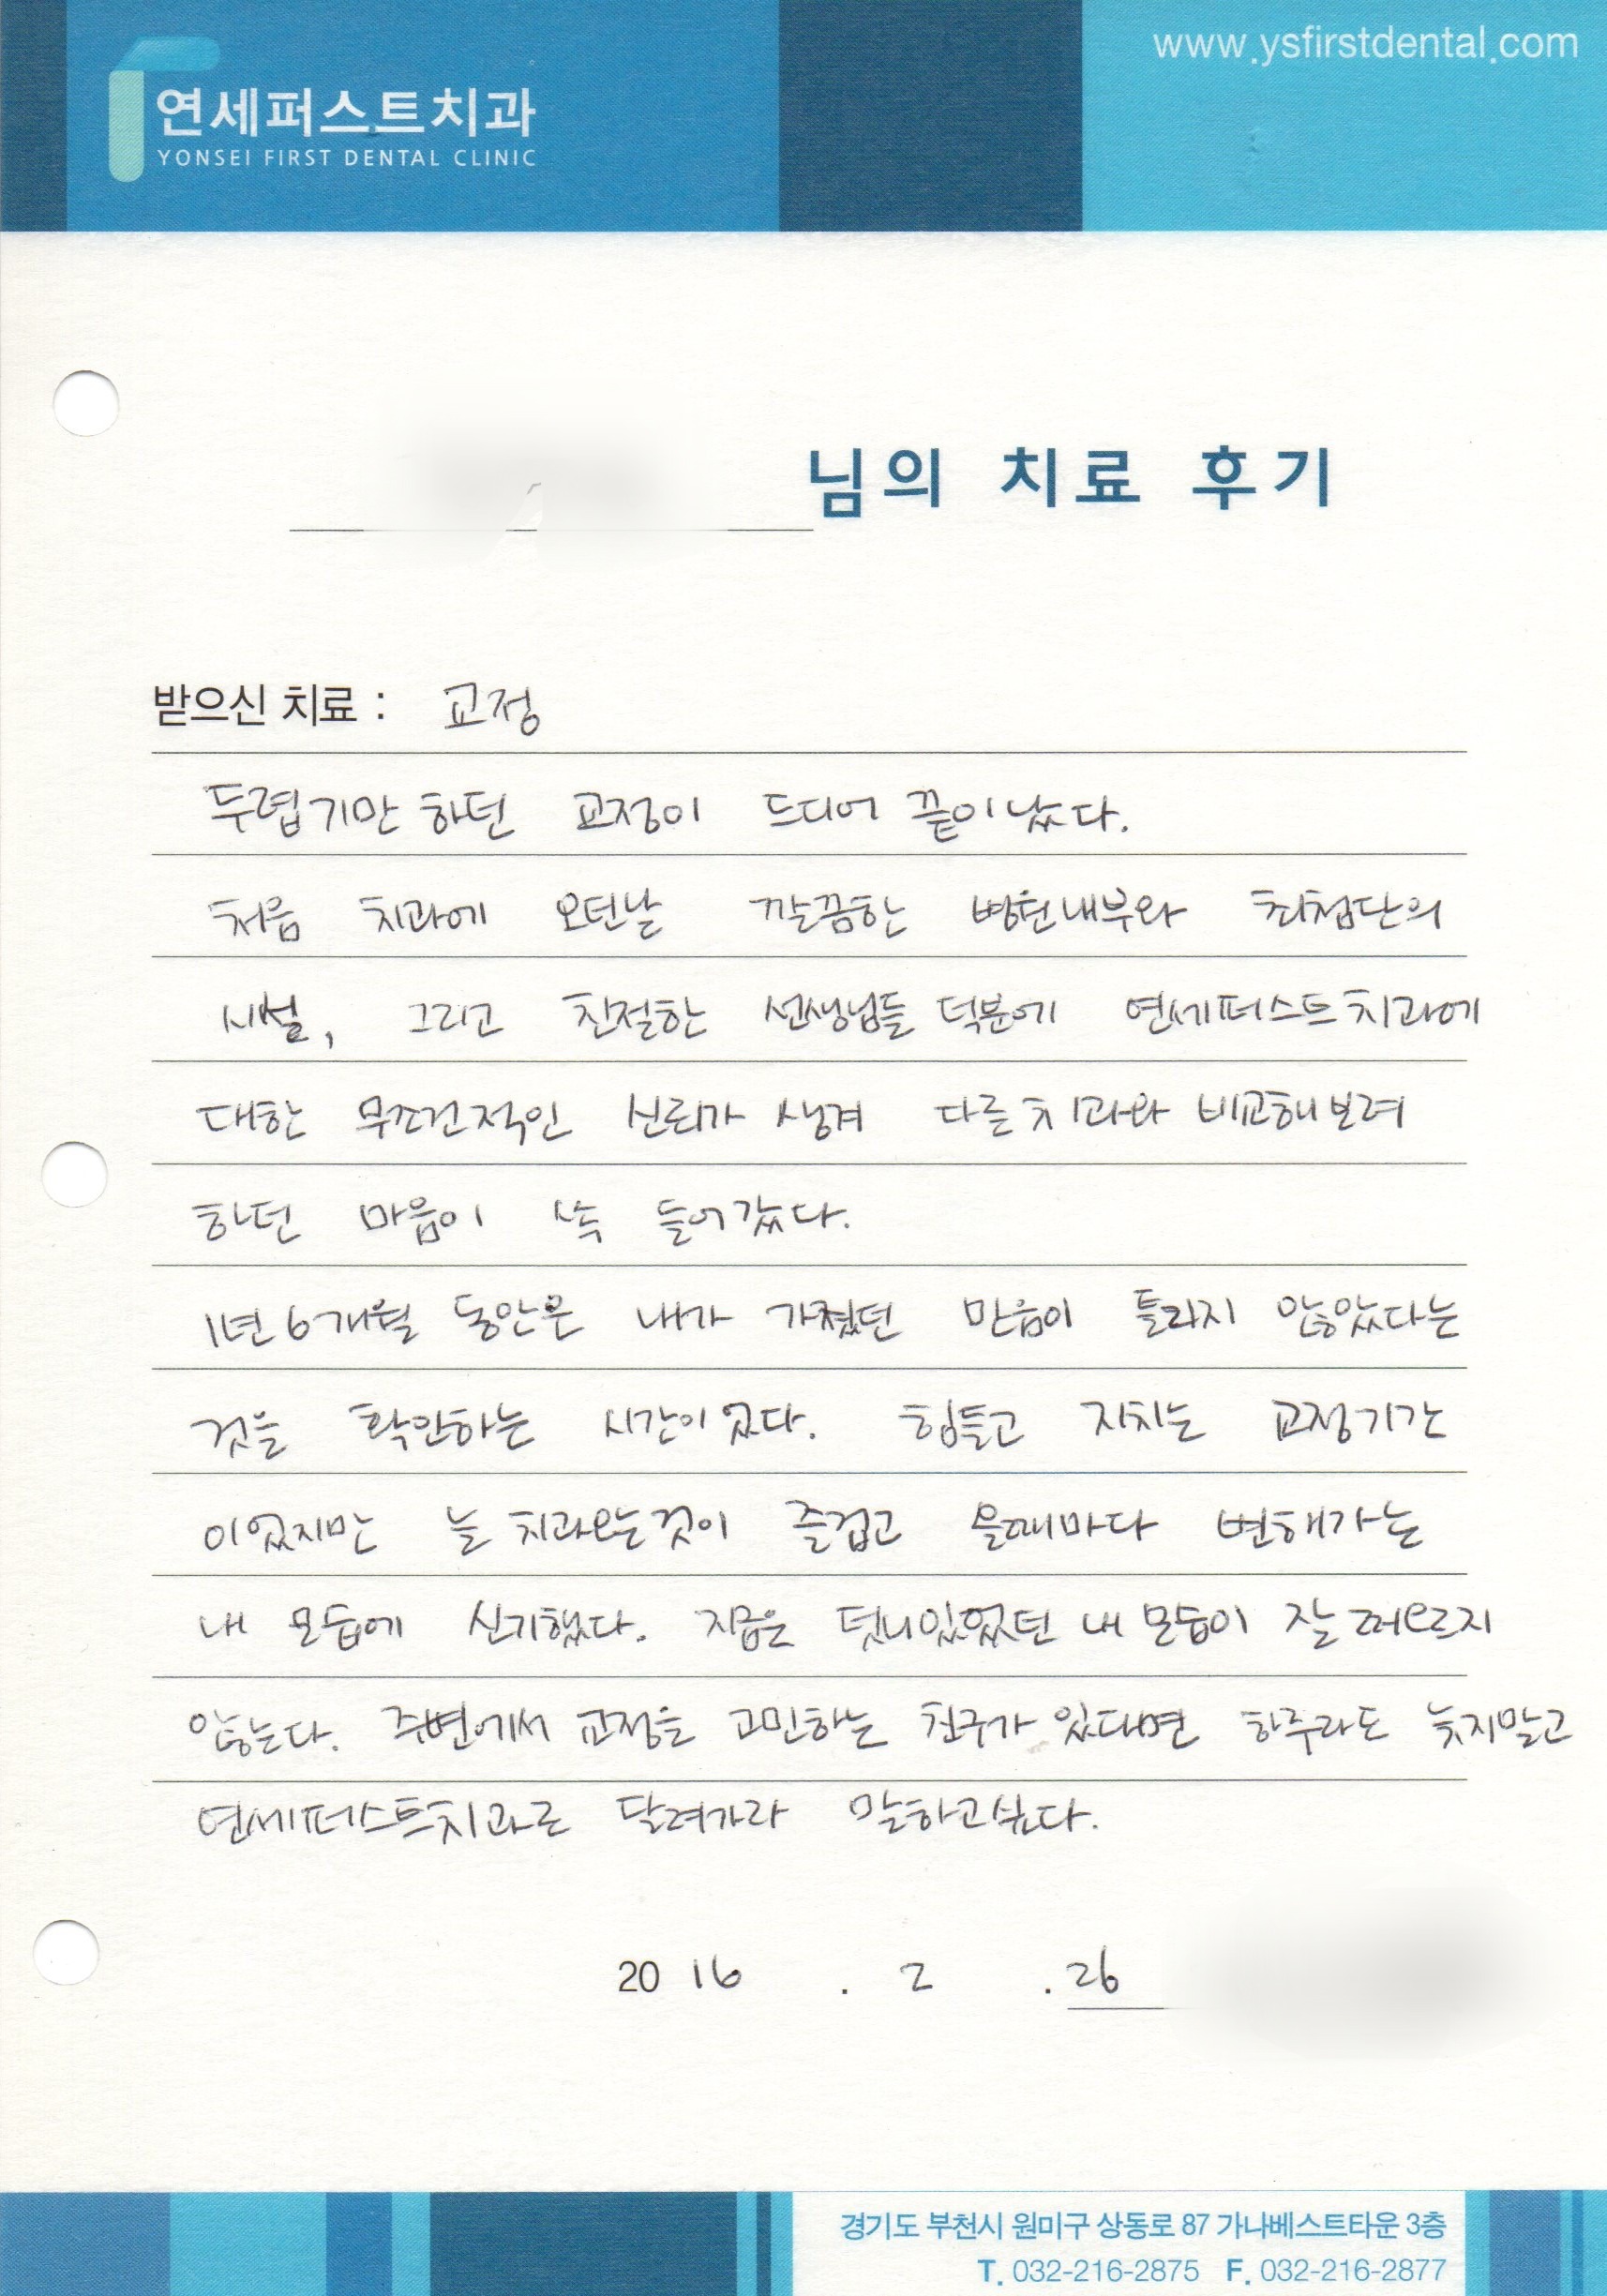 www.ysfirstdental.com
연세퍼스트치과
YONSEI FIRST DENTAL CLINIC
님의 치료 후기
받으신 치료 : 교정
두렵기만 하던 교정이 드디어 끝이났다.
처음 치과에 오던날 깔끔한 병원내부와 최첨단의
시설, 그리고 친절한 선생님들 덕분에 연세퍼스트치과에
대한 무조건적인 신뢰가 생겨 다른치과와 비교해보려
하던 마음이 쏙 들어갔다.
1년 6개월 동안은 내가 가졌던 믿음이 틀리지 않았다는
것을 확인하는 시간이었다. 힘들고 지치는 교정기간
이었지만 늘 치과오는것이 즐겁고 올때마다 변해가는
내 모습에 신기했다. 지금은 덧니있었던 내 모습이 잘 떠오르지
않는다. 주변에서 교정을 고민하는 친구가 있다면 하루라도 늦지말고
연세퍼스트치과로 달려가라 말하고싶다.
2016 . 2 . 26
경기도 부천시 원미구 상동로 87 가나베스트타운 3층
T. 032-216-2875 F. 032-216-2877